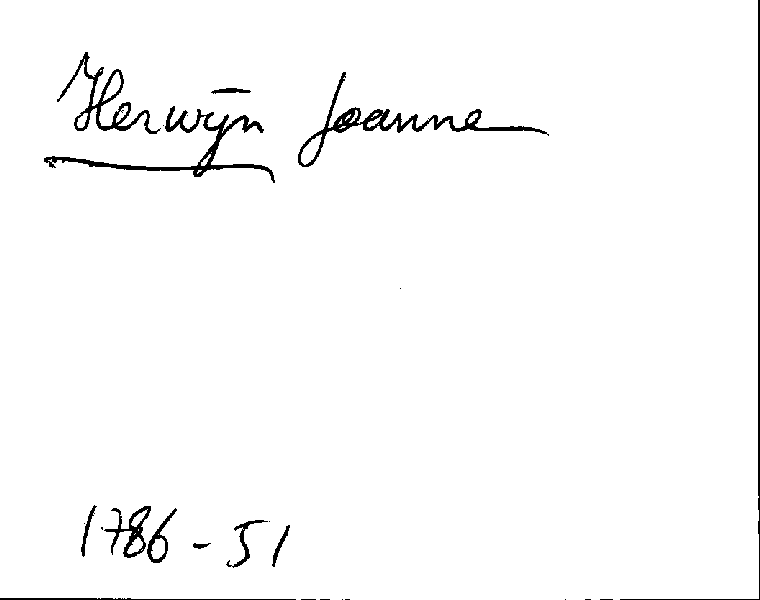 Herwijn Joanne
1786-51